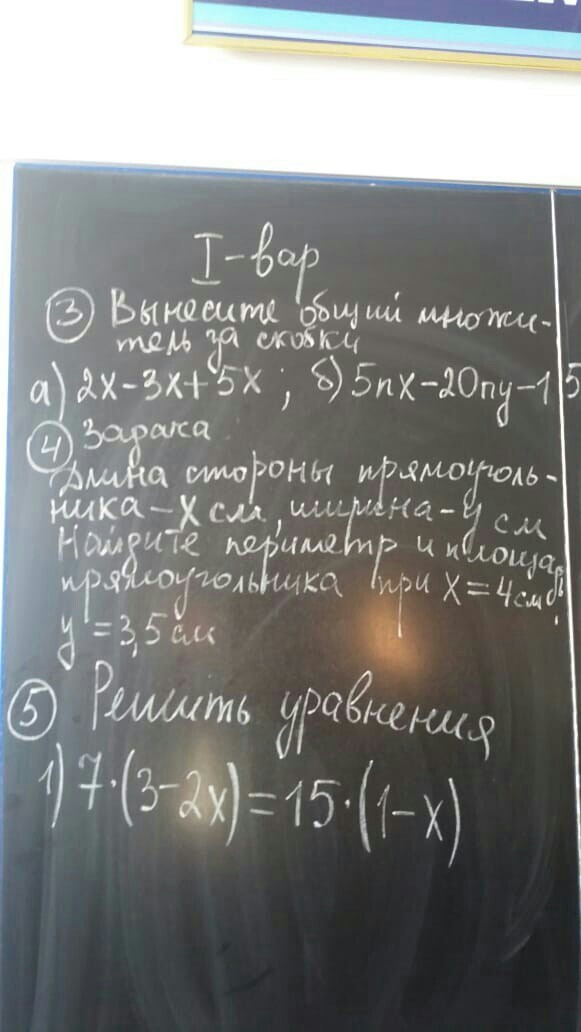 I-вар
③ Вынесите общий множи-
тель за скобки
а) 2x-3x+5x ; б) 5nx-20ny-15
④ Задача
Длина стороны прямоуголь-
ника-x см, ширина-y см
Найдите периметр и площадь
прямоугольника при x=4см
y=3,5см
⑤ Решить уравнения
1) 7·(3-2x)=15·(1-x)